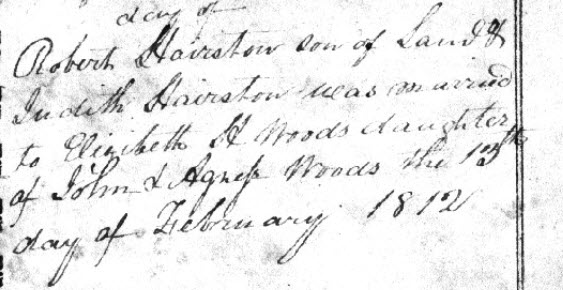 day of
Robert Hairston son of Saml &
Judith Hairston was married
to Elizibeth H Woods daughter
of John & Agness Woods the 13th
day of February 1812